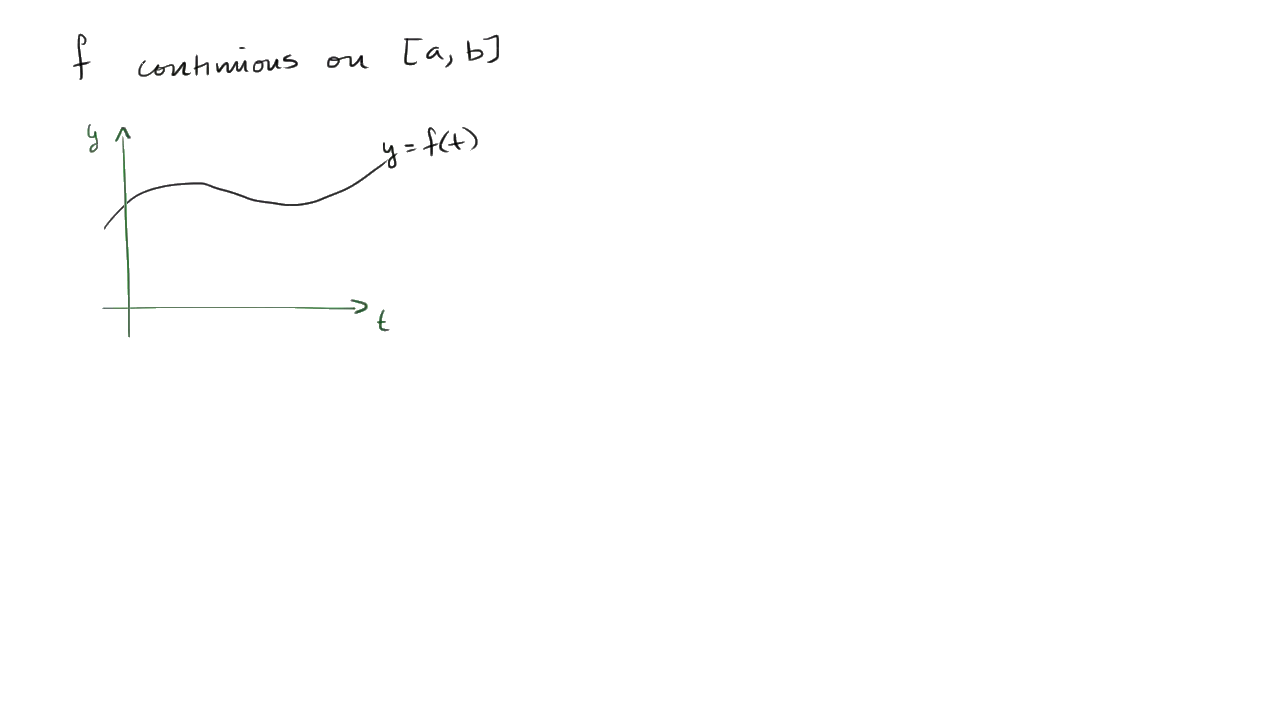 f continious on [a, b]
y
y = f(t)
t